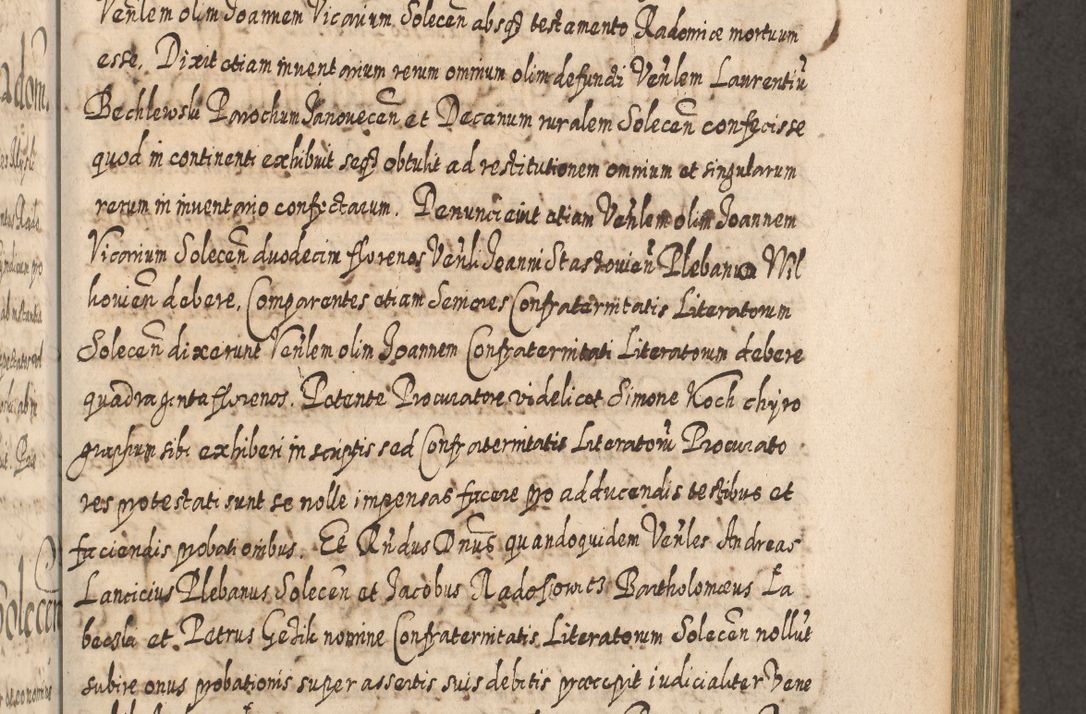 Ven̄lem olim Joannem Vicarium Solecen̄ absq̃ testamento Radomiæ mortuum
esse. Dixit etiam inventarium rerum omnium olim defuncti Ven̄lem Laurentiū
Bechlewski Parochum Janovecen̄ et Decanum ruralem Solecen̄ confecisse
quod in continenti exhibuit seq̃ obtulit ad restitutionem omnium et singularum
rerum in inventario confectarum. Denunciavit etiam Ven̄lem olim Joannem
Vicarium Solecen̄ duodecim florenos Ven̄li Joanni Plebano Wil
kovien̄ debere. Comparentes etiam Seniores Confraternitatis Literatorum
Solecen̄ dixerunt Ven̄lem olim Joannem Confraternitati Literatorum debere
quadraginta florenos. Petente Procuratore videlicet Simone Koch chyro
graphum sibi exhiberi in scriptis sed Confraternitatis Literatorū Procurato
res protestati sunt se nolle impensas facere pro adducendis testibus et
faciendis probationibus. Et Rn̄dus Dnus̄ quandoquidem Ven̄les Andreas
Lancicius Plebanus Solecen̄ et Jacobus Bartholomæus Ła
becski et Petrus Gedik nomine Confraternitatis Literatorum Solecen̄ nollūt
subire onus probationis super assertis suis debitis præcepit iudicialiter Vene